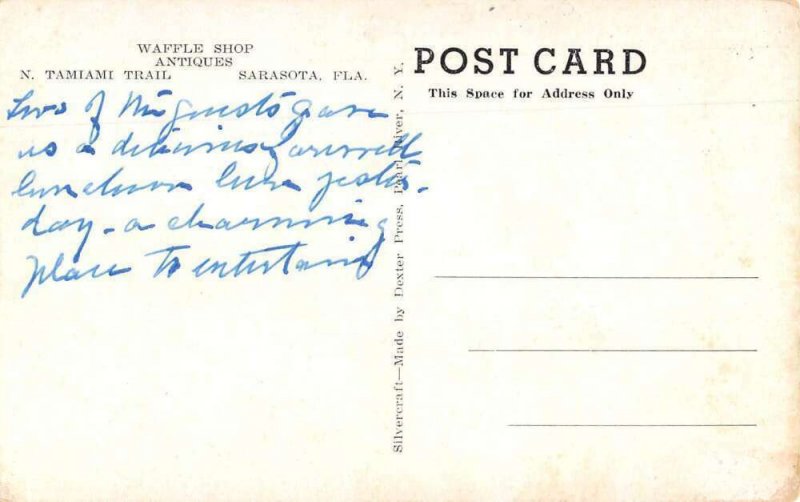 WAFFLE SHOP
ANTIQUES
N. TAMIAMI TRAIL SARASOTA, FLA.
Two of the guests gave
us a delicious farewell
luncheon here yester-
day - a charming
place to entertain
Silvercraft—Made by Dexter Press, Pearl River, N. Y.
POST CARD
This Space for Address Only